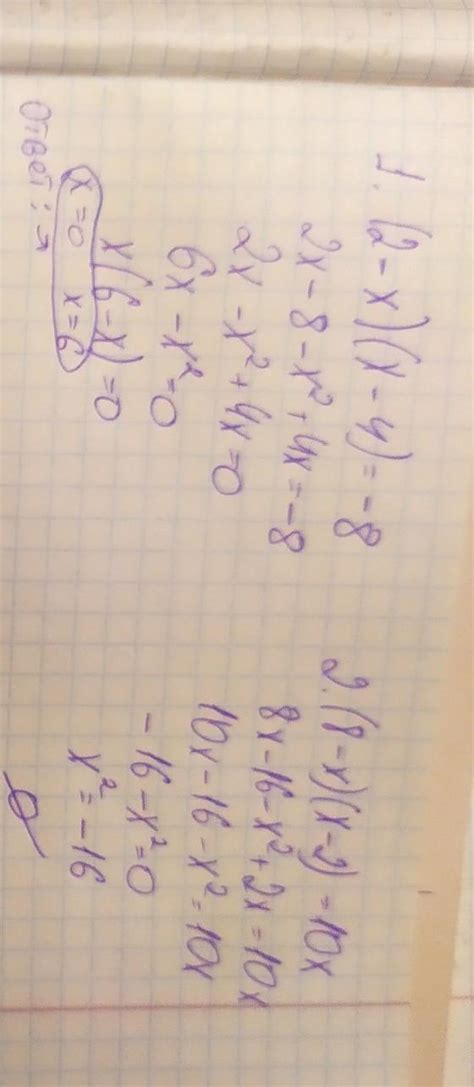 1. (2-x)(x-4)=-8
2x-8-x²+4x=-8
2x-x²+4x=0
6x-x²=0
x(6-x)=0
x=0 x=6
Ответ: →
2. (8-x)(x-2)=10x
8x-16-x²+2x=10x
10x-16-x²=10x
-16-x²=0
x²=-16
∅